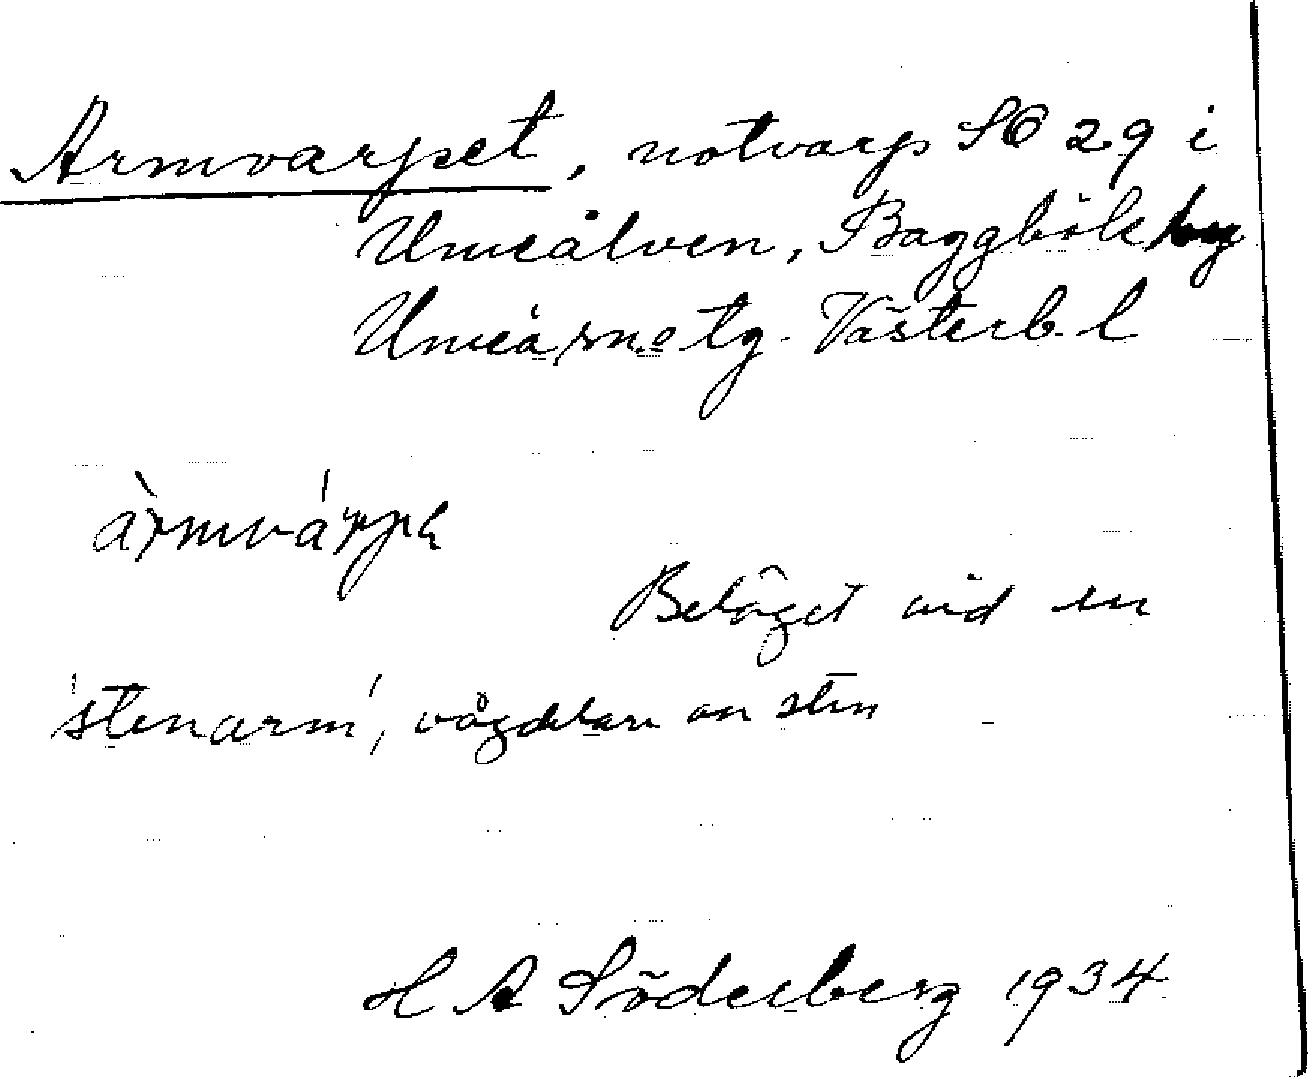 Armvarpet, notvarp SO 29 i
Umeälven, Baggböle by
Umeå sn o tg. Västerb. l
àrmvárpe
Beläget vid en
'stenarm', vågdelare av sten
H A Söderberg 1934